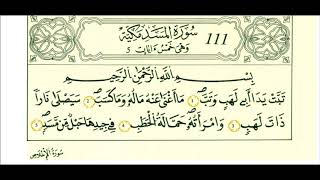 سُورَةُ الْمَسَدِ مَكِّيَّة 111
وَهِيَ خَمْسُ ءَايَات 5
بِسْمِ اللَّهِ الرَّحْمَٰنِ الرَّحِيمِ
تَبَّتْ يَدَا أَبِي لَهَبٍ وَتَبَّ ۝١ مَا أَغْنَىٰ عَنْهُ مَالُهُ وَمَا كَسَبَ ۝٢ سَيَصْلَىٰ نَارًا
ذَاتَ لَهَبٍ ۝٣ وَامْرَأَتُهُ حَمَّالَةَ الْحَطَبِ ۝٤ فِي جِيدِهَا حَبْلٌ مِّن مَّسَدٍ ۝٥
سُورَةُ الإِخْلَاصِ